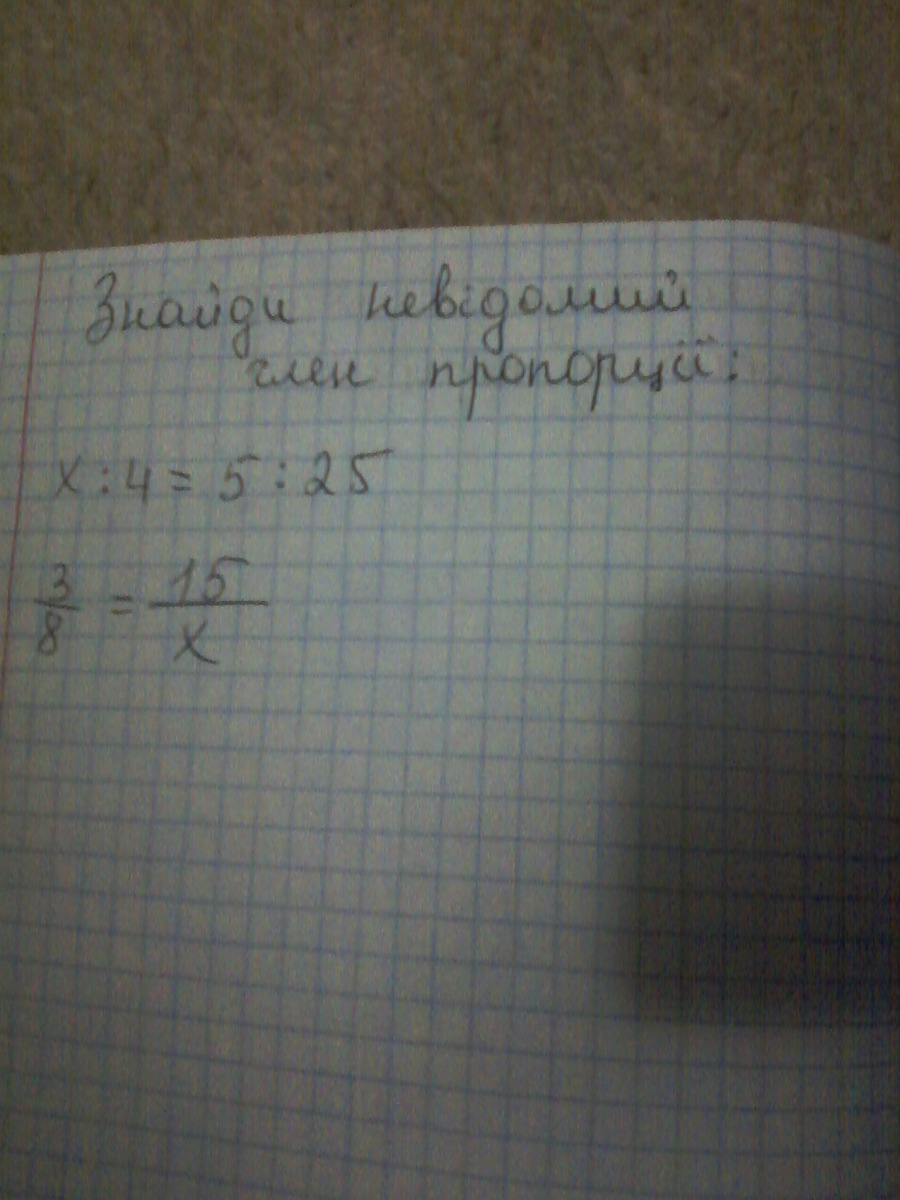 Знайди невідомий
член пропорції:
x : 4 = 5 : 25
3/8 = 15/x